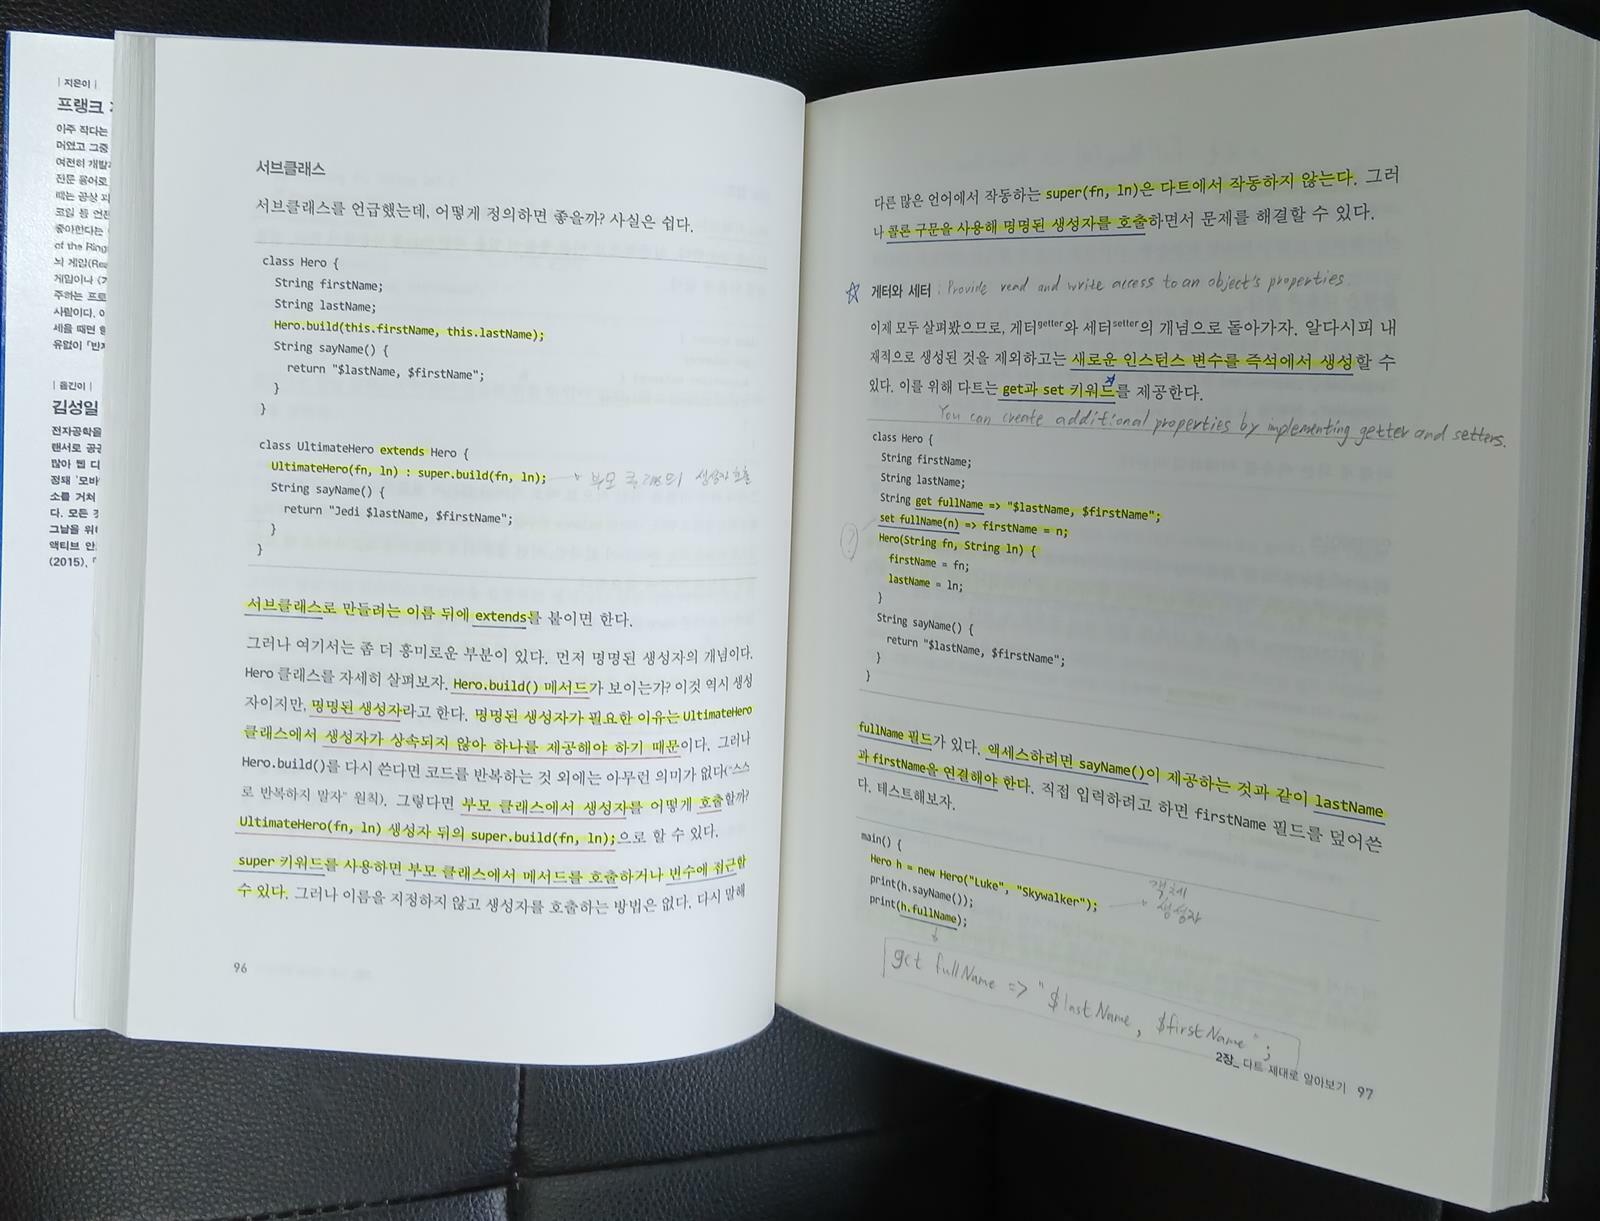 | 지은이 |
프랭크
이주 직다는
머였고 그중
여전히 개발
전문 용어로
때는 공상 과
코일 등 언
좋아한다는
of the Ring
뇌 게임(Rea
게임이나
주하는 프로
사람이다. 이
세울 때면 항
유없이
| 옮긴이 |
김성일
전자공학을
랜서로 공공
많아 웹 디
정돼 '모바
소를 거쳐
다. 모든 것
그날을 위
액티브 안
(2015),
서브클래스
서브클래스를 언급했는데, 어떻게 정의하면 좋을까? 사실은 쉽다.
class Hero {
String firstName;
String lastName;
Hero.build(this.firstName, this.lastName);
String sayName() {
return "$lastName, $firstName";
}
}
class UltimateHero extends Hero {
UltimateHero(fn, ln) : super.build(fn, ln); 부모 클래스의 생성자 호출
String sayName() {
return "Jedi $lastName, $firstName";
}
}
서브클래스로 만들려는 이름 뒤에 extends를 붙이면 한다.
그러나 여기서는 좀 더 흥미로운 부분이 있다. 먼저 명명된 생성자의 개념이다.
Hero 클래스를 자세히 살펴보자. Hero.build() 메서드가 보이는가? 이것 역시 생성
자이지만, 명명된 생성자라고 한다. 명명된 생성자가 필요한 이유는 UltimateHero
클래스에서 생성자가 상속되지 않아 하나를 제공해야 하기 때문이다. 그러나
Hero.build()를 다시 쓴다면 코드를 반복하는 것 외에는 아무런 의미가 없다("스스
로 반복하지 말자" 원칙). 그렇다면 부모 클래스에서 생성자를 어떻게 호출할까?
UltimateHero(fn, ln) 생성자 뒤의 super.build(fn, ln);으로 할 수 있다.
super 키워드를 사용하면 부모 클래스에서 메서드를 호출하거나 변수에 접근할
수 있다. 그러나 이름을 지정하지 않고 생성자를 호출하는 방법은 없다. 다시 말해
96
다른 많은 언어에서 작동하는 super(fn, ln)은 다트에서 작동하지 않는다. 그러
나 콜론 구문을 사용해 명명된 생성자를 호출하면서 문제를 해결할 수 있다.
☆ 게터와 세터 : Provide read and write access to an object's properties.
이제 모두 살펴봤으므로, 게터getter와 세터setter의 개념으로 돌아가자. 알다시피 내
재적으로 생성된 것을 제외하고는 새로운 인스턴스 변수를 즉석에서 생성할 수
있다. 이를 위해 다트는 get과 set 키워드를 제공한다.
You can create additional properties by implementing getter and setters.
class Hero {
String firstName;
String lastName;
String get fullName => "$lastName, $firstName";
set fullName(n) => firstName = n;
? Hero(String fn, String ln) {
firstName = fn;
lastName = ln;
}
String sayName() {
return "$lastName, $firstName";
}
}
fullName 필드가 있다. 액세스하려면 sayName()이 제공하는 것과 같이 lastName
과 firstName을 연결해야 한다. 직접 입력하려고 하면 firstName 필드를 덮어쓴
다. 테스트해보자.
main() {
Hero h = new Hero("Luke", "Skywalker"); 객체 생성자
print(h.sayName());
print(h.fullName);
get fullName => "$lastName, $firstName";
2장_ 다트 제대로 알아보기 97